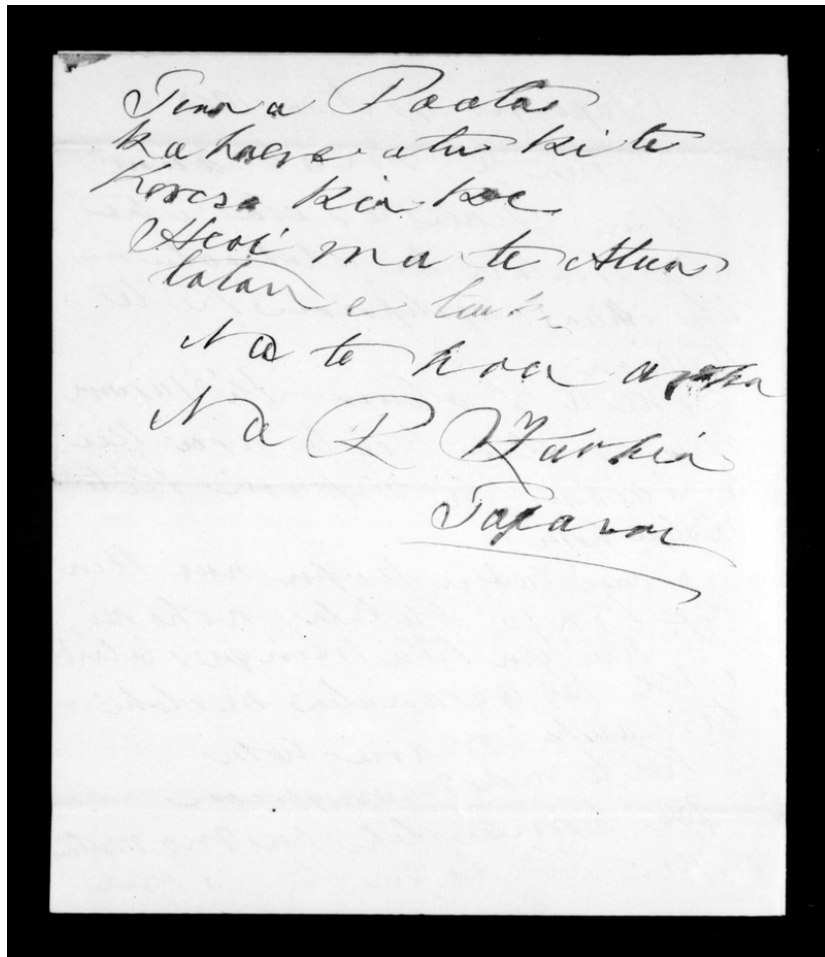 Tena a Paata
ka haere atu ki te
Korero kia koe
Heoi ma te Atua
tatou e tiaki
Na to hoa aroha
Na R